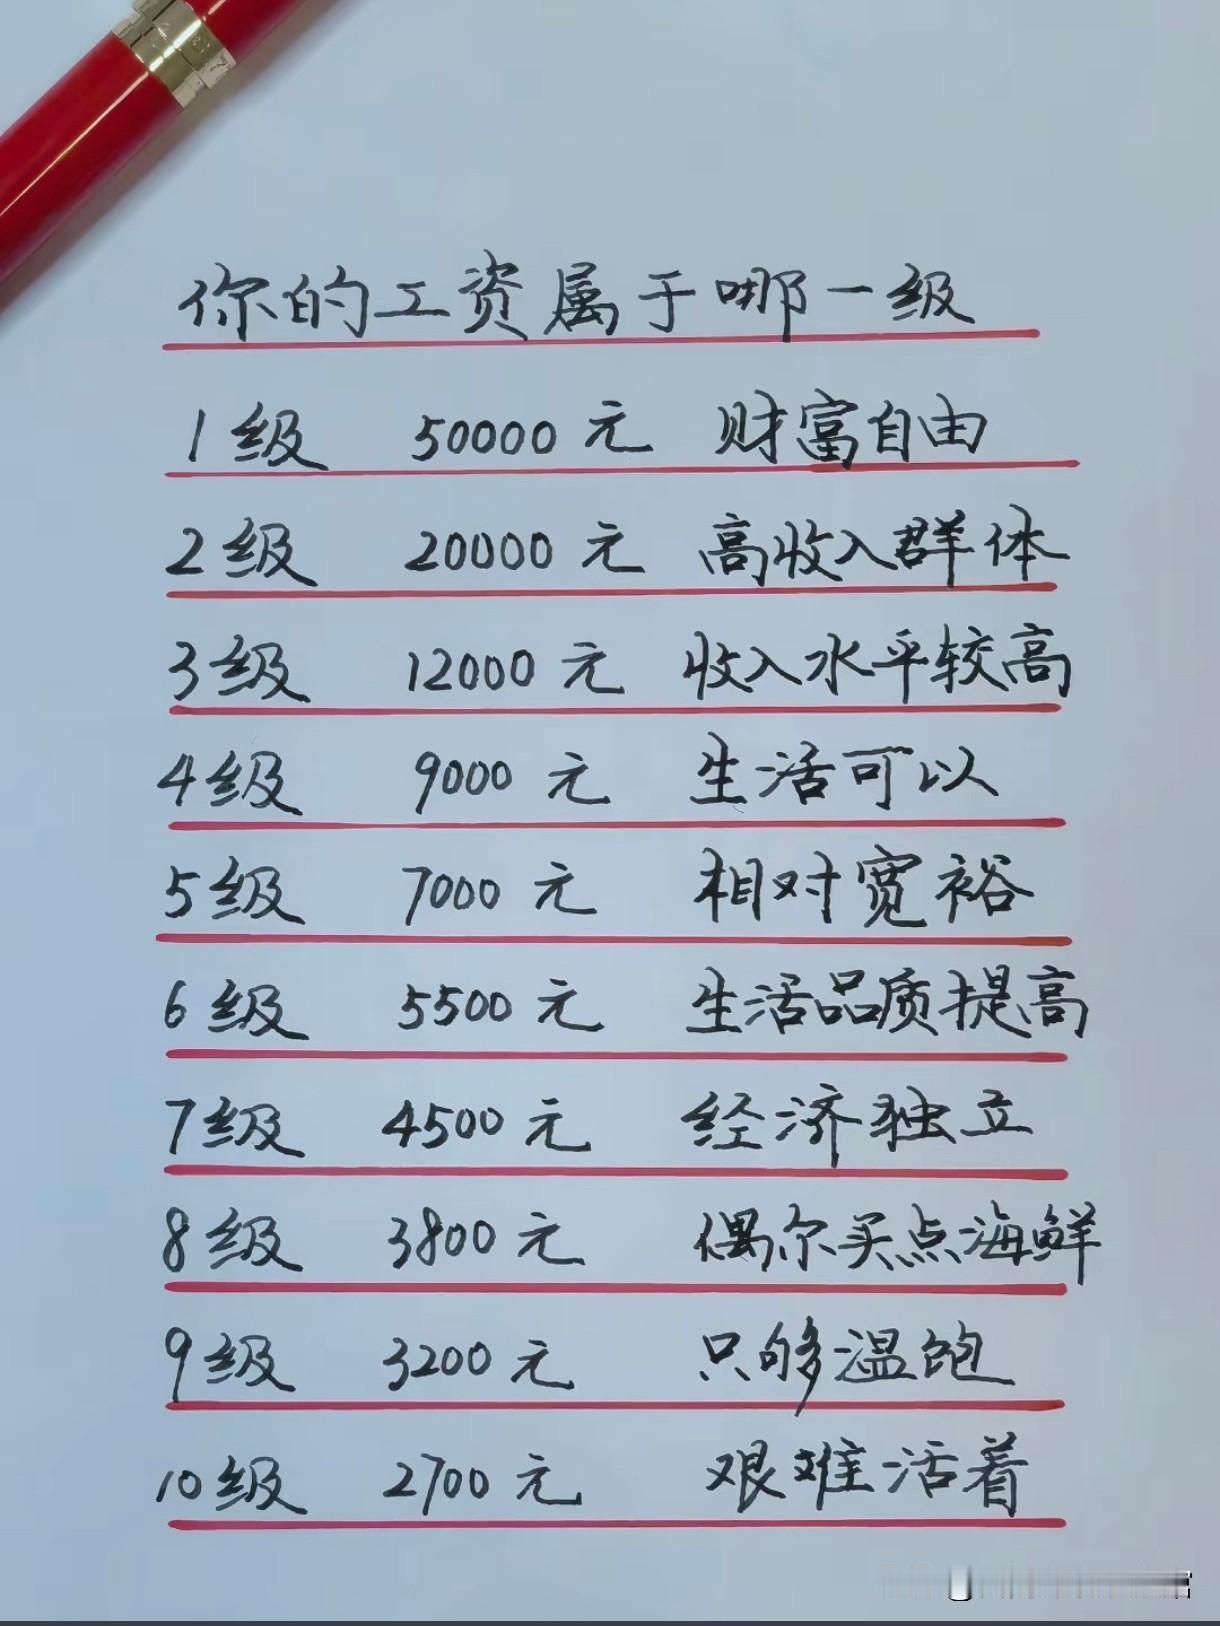 你的工资属于哪一级
1级 50000元 财富自由
2级 20000元 高收入群体
3级 12000元 收入水平较高
4级 9000元 生活可以
5级 7000元 相对宽裕
6级 5500元 生活品质提高
7级 4500元 经济独立
8级 3800元 偶尔买点海鲜
9级 3200元 只够温饱
10级 2700元 艰难活着